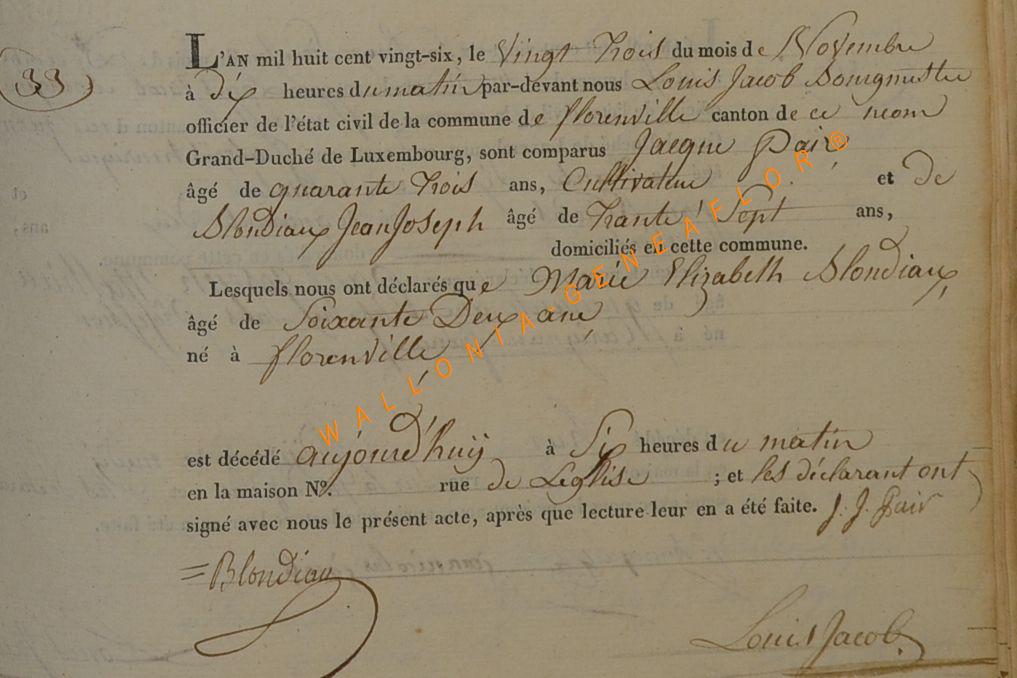 33
L'AN mil huit cent vingt-six, le Vingt trois du mois de Novembre
à dix heures du matin par-devant nous Louis Jacob Bourgmestre
officier de l'état civil de la commune de florenville canton de ce nom
Grand-Duché de Luxembourg, sont comparus Jacque Pair
âgé de quarante trois ans, Cultivateur et de
Blondiaux Jean Joseph âgé de trante Sept ans,
domiciliés en cette commune.
Lesquels nous ont déclarés que Marie Elizabeth Blondiaux
âgé de Soixante Deux ans
né à florenville
est décédé aujourd'huij à Six heures du matin
en la maison Nº. rue de Leglise ; et les déclarant ont
signé avec nous le présent acte, après que lecture leur en a été faite. J. J. Pair
Blondiau
Louis Jacob
WALLONIA-GENEAFLOR®